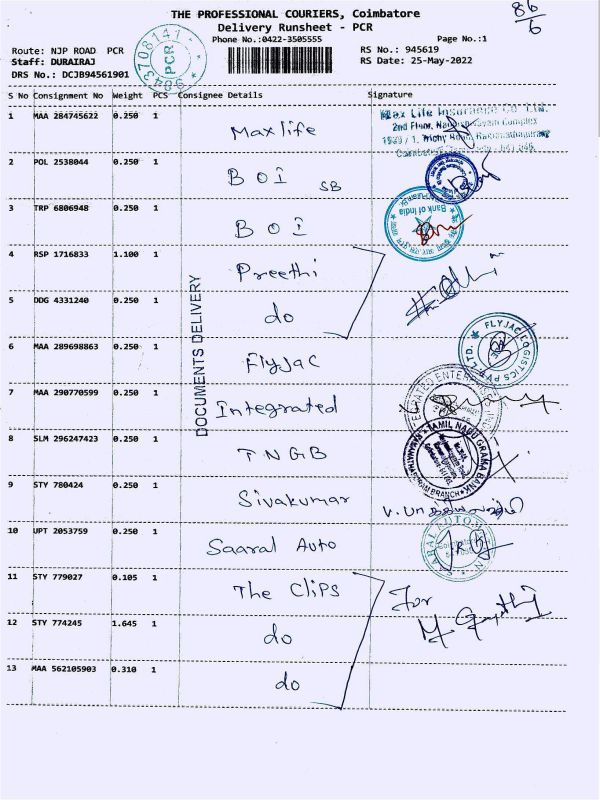 86/6
THE PROFESSIONAL COURIERS, Coimbatore
Delivery Runsheet - PCR
Phone No.:0422-3505555
Page No.:1
Route: NJP ROAD PCR
RS No.: 945619
Staff: DURAIRAJ
RS Date: 25-May-2022
DRS No.: DCJB94561901
9843708141
PCR
S No Consignment No Weight PCS Consignee Details Signature
1 MAA 284745622 0.250 1 Maxlife
Max Life Insurance Co. Ltd.
2nd Floor, Complex
Trichy Road,
2 POL 2538044 0.250 1 BOI SB
3 TRP 6806948 0.250 1 BOI
Bank of India
4 RSP 1716833 1.100 1 Preethi
5 DDG 4331240 0.250 1 do
DOCUMENTS DELIVERY
6 MAA 289698863 0.250 1 Flyjac
FLYJAC LOGISTICS PVT. LTD.
7 MAA 290770599 0.250 1 Integrated
8 SLM 296247423 0.250 1 TNGB
TAMIL NADU GRAMA BANK
BRANCH
9 STY 780424 0.250 1 Sivakumar
10 UPT 2053759 0.250 1 Saaral Auto
11 STY 779027 0.105 1 The Clips
For
12 STY 774245 1.645 1 do
13 MAA 562105903 0.310 1 do